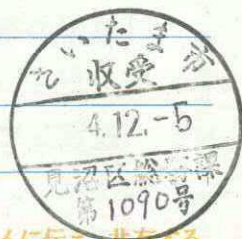 さいたま市
収受
4.12.-5
見沼区総務課
第1090号